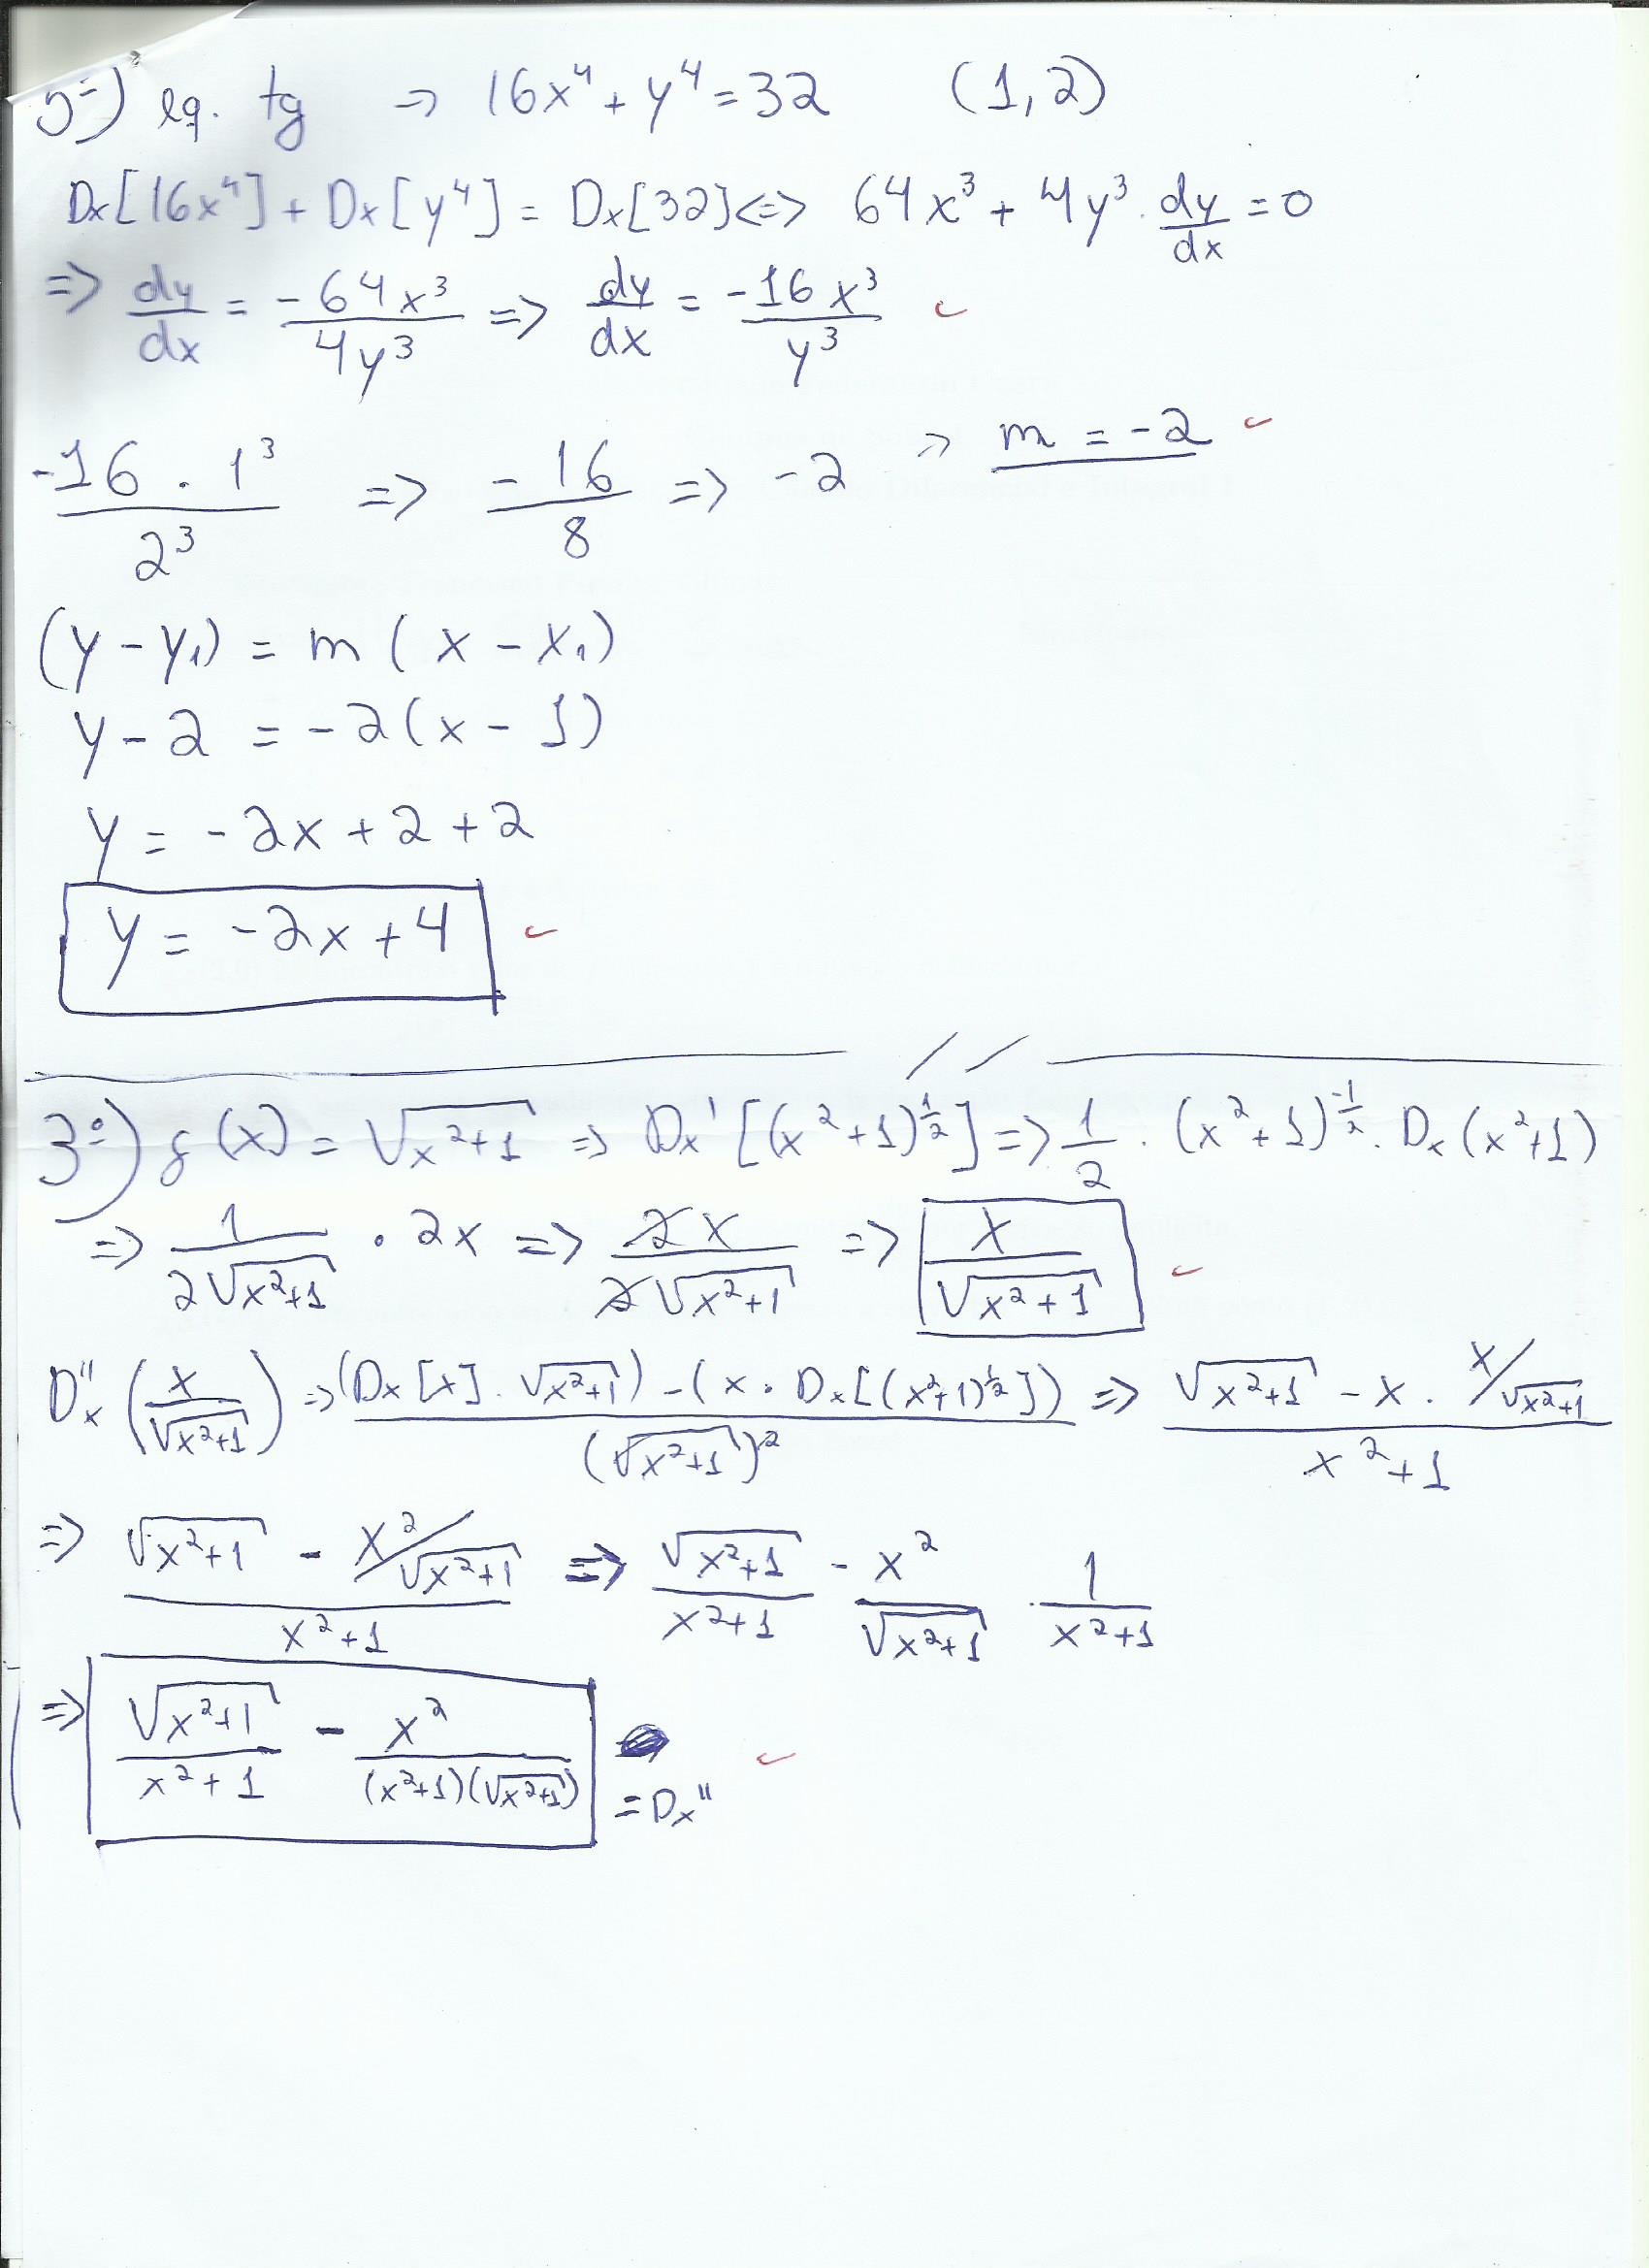 5º) eq. tg → 16x⁴ + y⁴ = 32 (1, 2)
Dx[16x⁴] + Dx[y⁴] = Dx[32] <=> 64x³ + 4y³ · dy/dx = 0
=> dy/dx = -64x³/4y³ => dy/dx = -16x³/y³
-16 · 1³/2³ => -16/8 => -2 => m = -2
(y - y₁) = m(x - x₁)
y - 2 = -2(x - 1)
y = -2x + 2 + 2
y = -2x + 4
3º) f(x) = √(x²+1) => Dx' [(x²+1)^(1/2)] => 1/2 · (x²+1)^(-1/2) · Dx(x²+1)
=> 1/(2√(x²+1)) · 2x => 2x/(2√(x²+1)) => x/√(x²+1)
Dx'' (x/√(x²+1)) => ((Dx[x] · √(x²+1)) - (x · Dx[(x²+1)^(1/2)]))/(√(x²+1))² => (√(x²+1) - x · x/√(x²+1))/(x²+1)
=> (√(x²+1) - x²/√(x²+1))/(x²+1) => √(x²+1)/(x²+1) - x²/√(x²+1) · 1/(x²+1)
=> √(x²+1)/(x²+1) - x²/((x²+1)(√(x²+1))) = Dx''